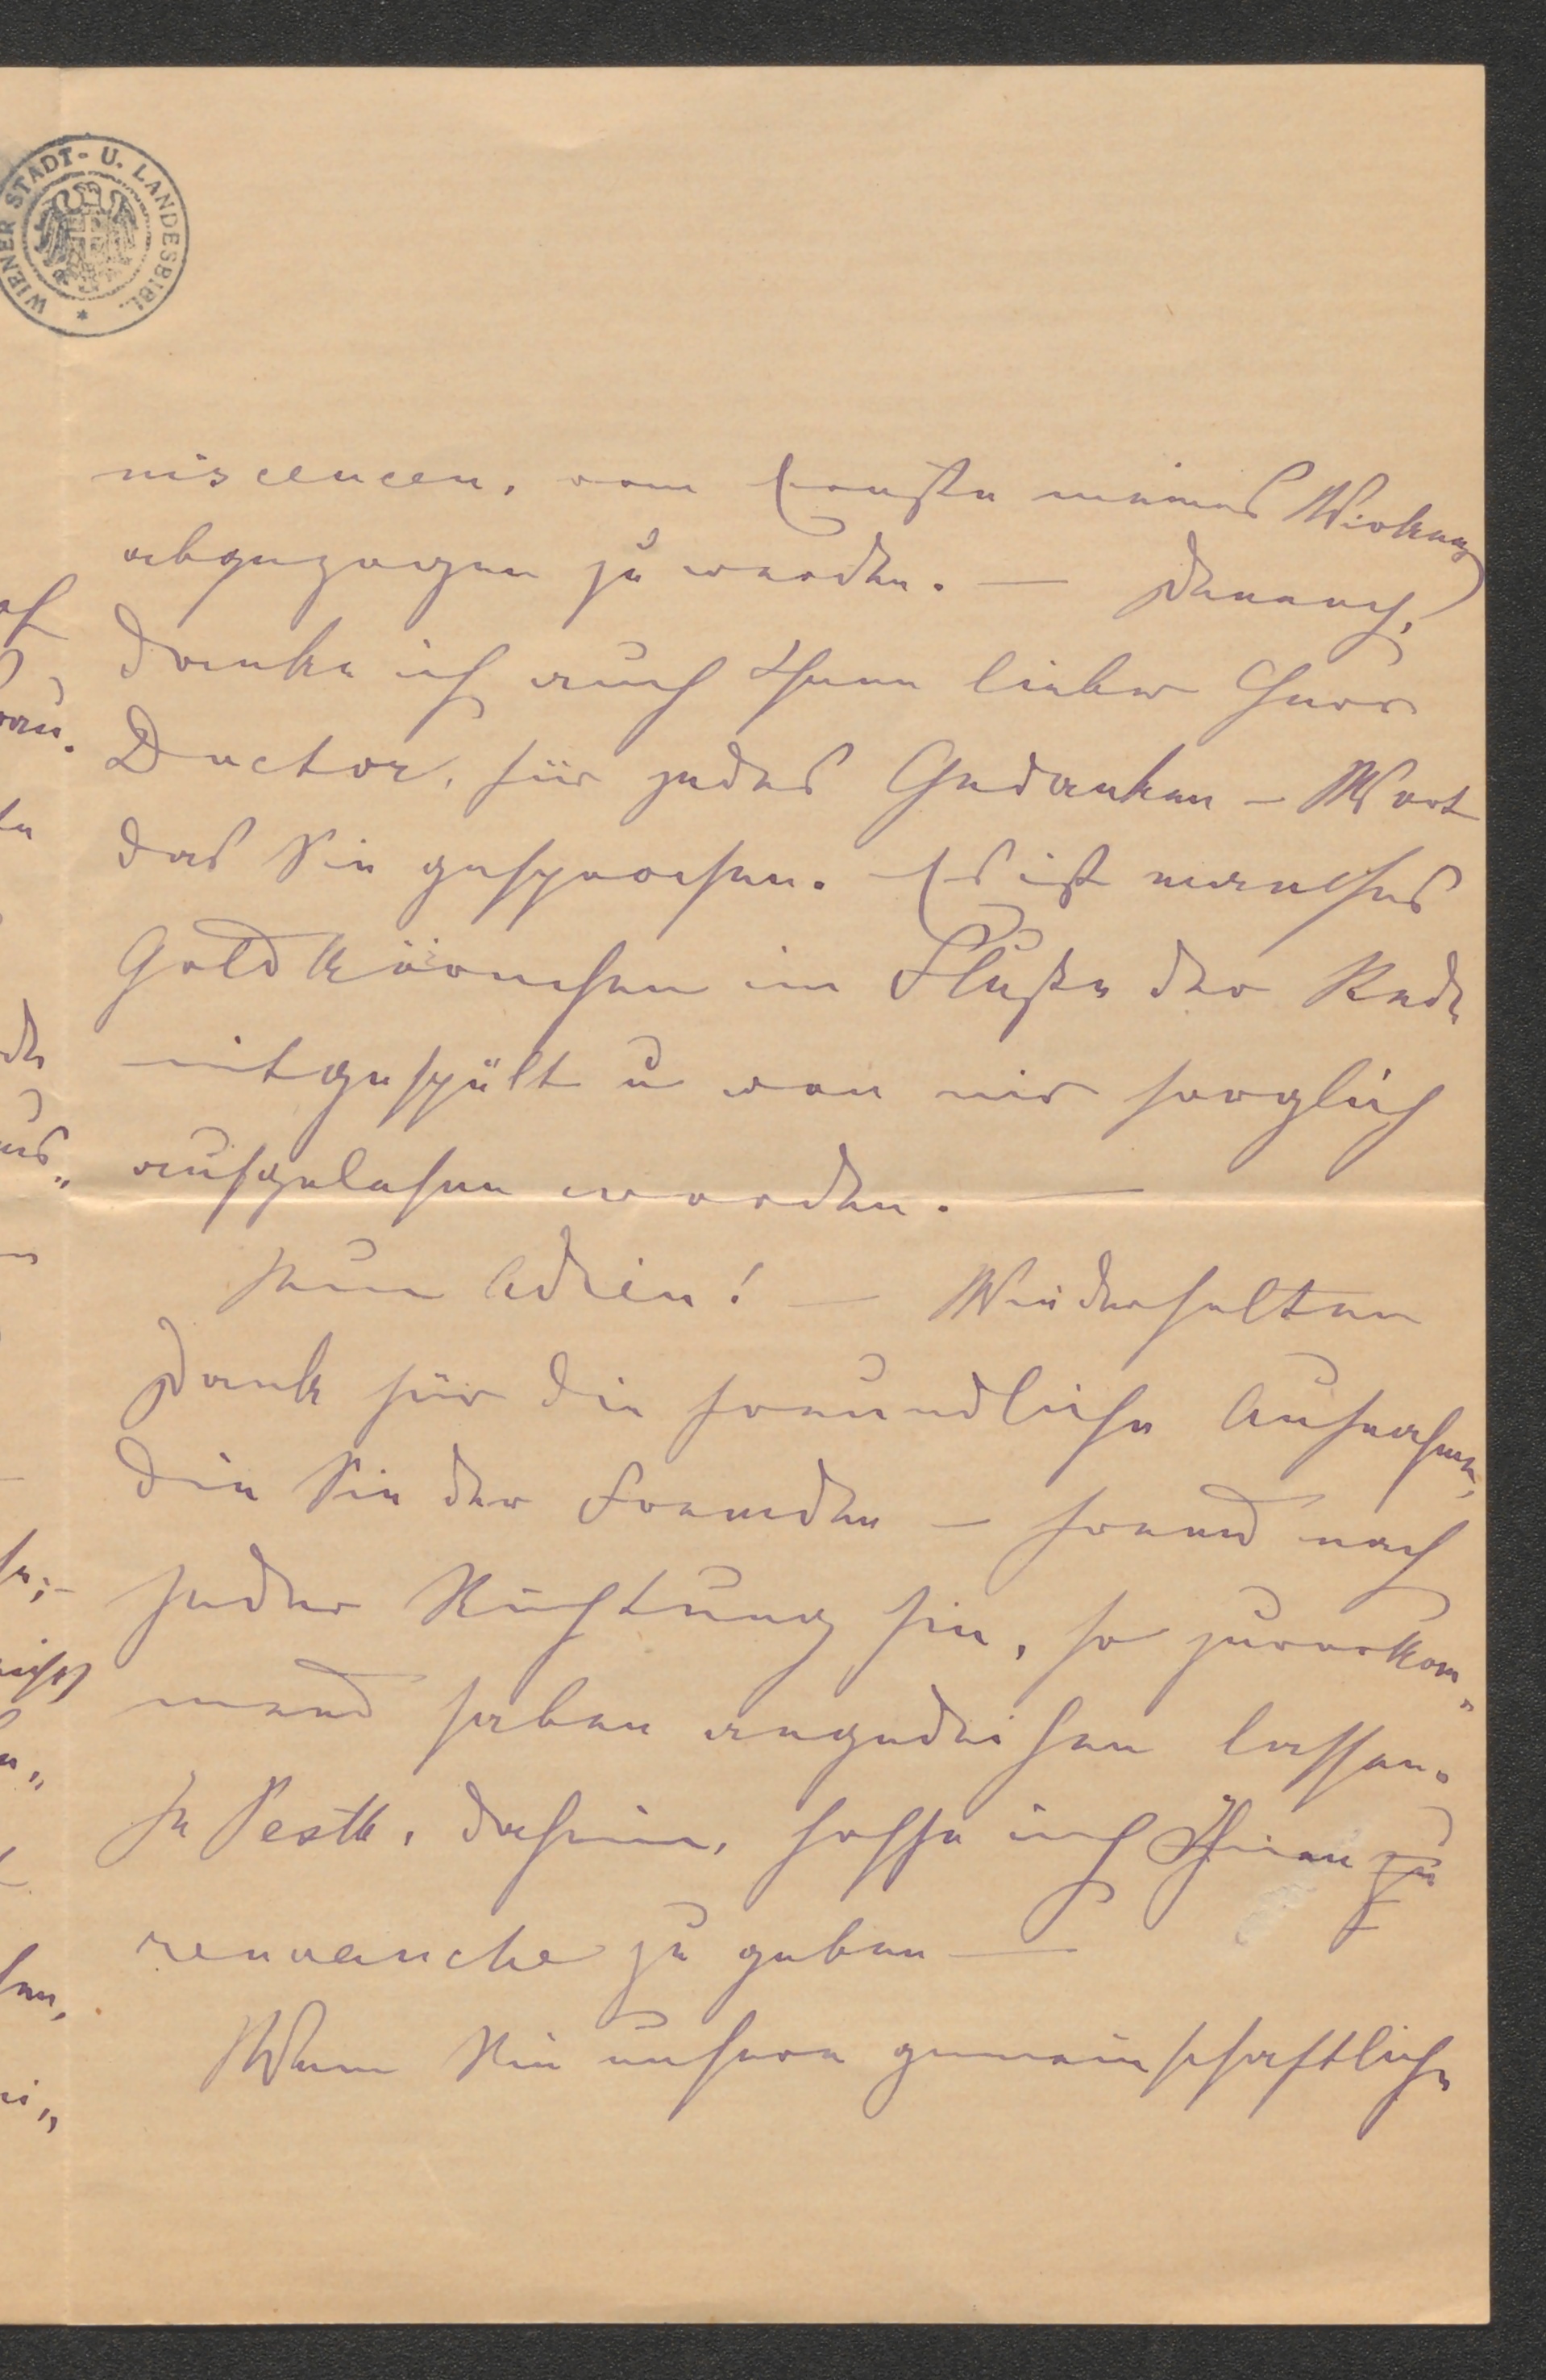 WIENER STADT- U. LANDESBIBL.
niscencen, vom Ernste meines Wirkens
abgezogen zu werden. — Dennoch,
danke ich auch Ihnen lieber Herr
Doctor, für jedes Gedanken - Wort
das Sie gesprochen. Es ist manches
Goldkörnchen im Fluße der Rede
mitgespült u von mir sorglich
aufgelesen worden. —
Nun Adieu! — Wiederholten
Dank für die freundliche Aufnahme,
die Sie der Fremden — fremd nach
jeder Richtung hin, so zuvorkom„
mend haben angedeihen lassen.
In Pesth, daheim, hoffe ich Ihnen zu
renvanche zu geben —
Wenn Sie unsere gemeinschaftliche